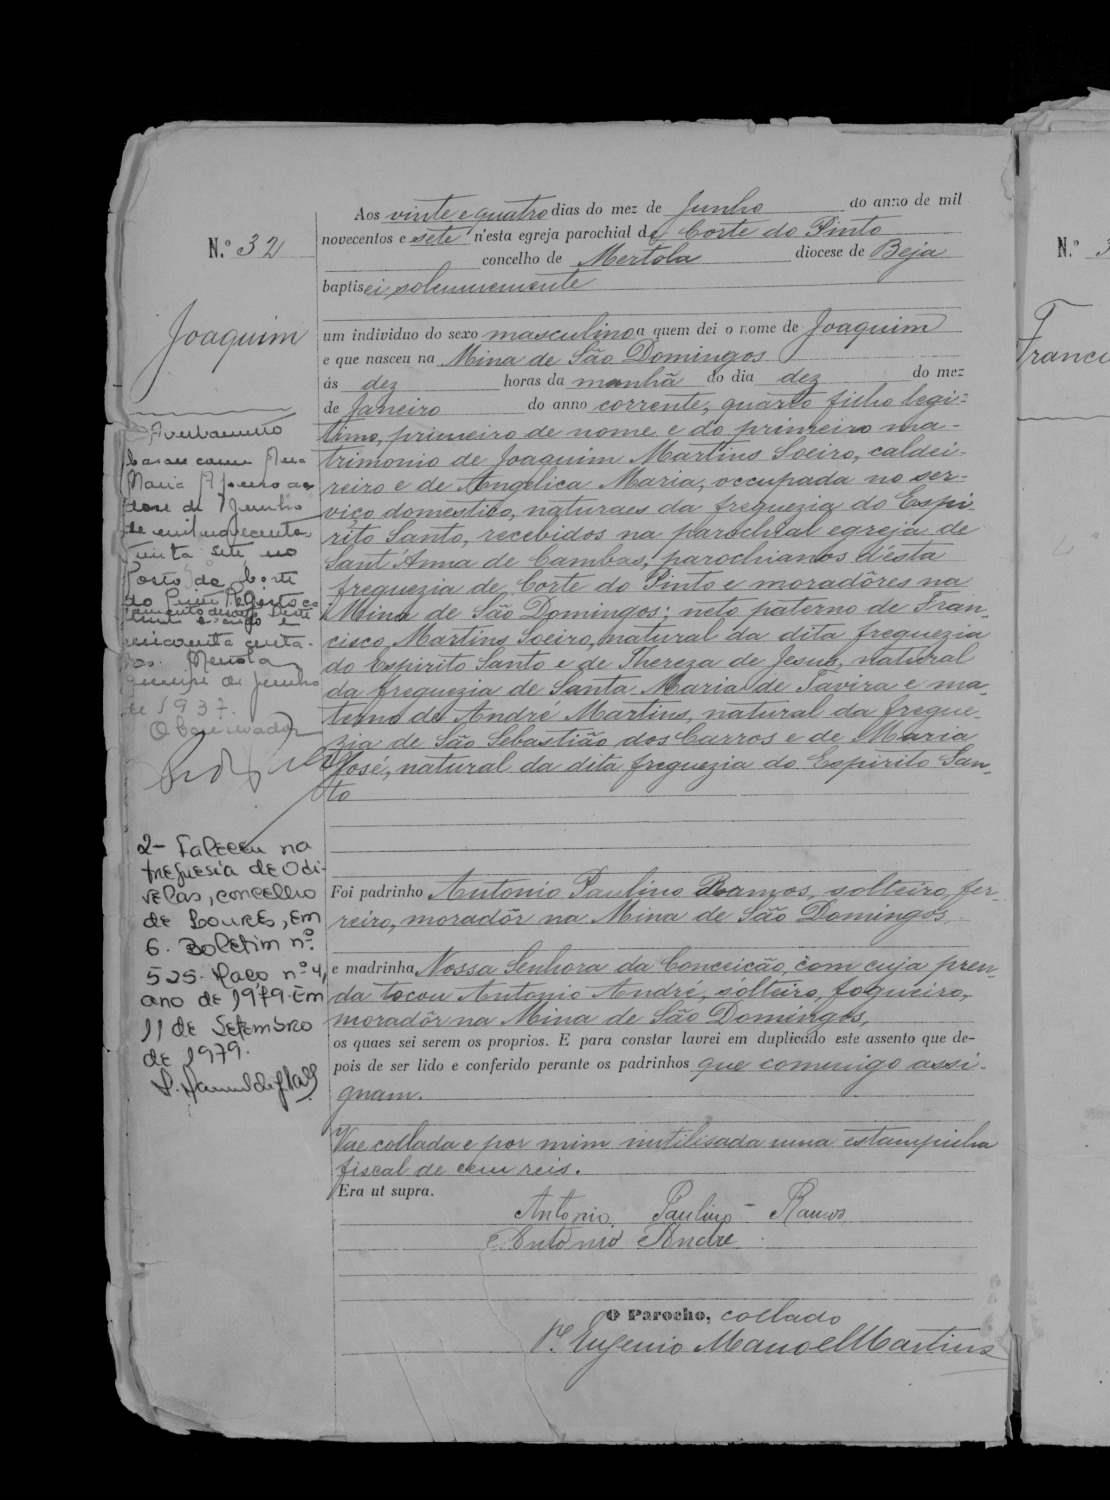 N.º 32
Joaquim
Aos vinte e quatro dias do mez de Junho do anno de mil
novecentos e sete n'esta egreja parochial de Corte do Pinto
concelho de Mertola diocese de Beja
baptisei solemnemente
um individuo do sexo masculino a quem dei o nome de Joaquim
e que nasceu na Mina de São Domingos
ás dez horas da manhã do dia dez do mez
de Janeiro do anno corrente, quarto filho legi-
timo, primeiro de nome e do primeiro ma-
trimonio de Joaquim Martins Soeiro, caldei-
reiro e de Angelica Maria, occupada no ser-
viço domestico, naturaes da freguezia do Espi-
rito Santo, recebidos na parochial egreja de
Sant'Anna de Cambas, parochianos d'esta
freguezia de Corte do Pinto e moradôres na
Mina de São Domingos; neto paterno de Fran-
cisco Martins Soeiro, natural da dita freguezia
do Espirito Santo e de Thereza de Jesus, natural
da freguezia de Santa Maria de Tavira e ma-
terno de André Martins, natural da fregue-
zia de São Sebastião dos Carros e de Maria
José, natural da dita freguezia do Espirito San-
to
Foi padrinho Antonio Paulino Ramos, solteiro, fer-
reiro, moradôr na Mina de São Domingos
e madrinha Nossa Senhora da Conceição, com cuja pren-
da tocou Antonio André, sólteiro, fogueiro,
moradôr na Mina de São Domingos,
os quaes sei serem os proprios. E para constar lavrei em duplicado este assento que de-
pois de ser lido e conferido perante os padrinhos que commigo assi-
gnam.
Vae collada e por mim inutilisada uma estampilha
fiscal de cem reis.
Era ut supra.
Antonio Paulino Ramos
Antonio André
O Parocho, collado
P.e Eugenio Manoel Martins
Averbamento
Maria
de Junho
de mil novecentos
trinta sete no
Posto de Corte
do Pinto
Mertola
de Junho
de 1937.
O Conservador
2- Faleceu na
freguesia de Odi-
velas, concelho
de Loures, em
6. Boletim nº
525. Maço nº 4,
ano de 1979. Em
11 de Setembro
de 1979.
N.º 3
Franci